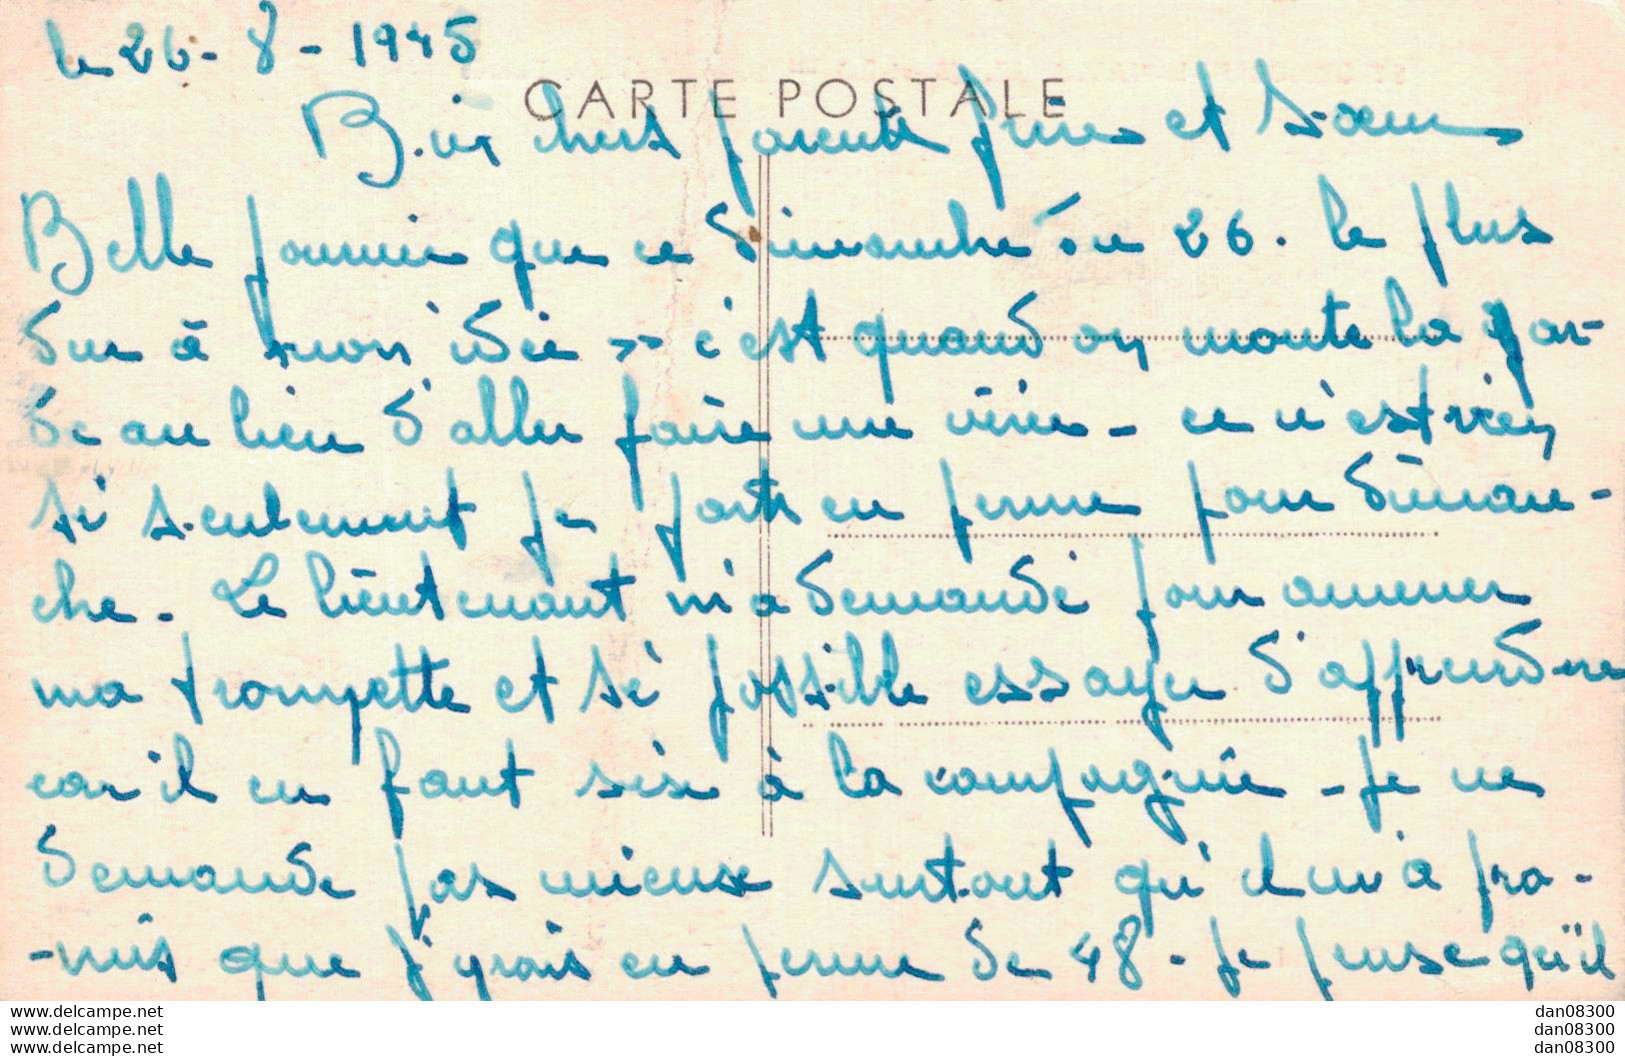 le 26-8-1945
CARTE POSTALE
Bien chers parents frères et sœurs
Belle journée que ce dimanche 26. le plus
dur à mon idée c'est quand on monte la gar-
de au lieu d'aller faire une virée - ce n'est rien
si seulement je parts en perme pour diman-
che. Le lieutenant m'a demandé pour amener
ma trompette et si possible essayer d'apprendre
car il en faut six à la compagnie - Je ne
demande pas mieux surtout qu'il m'a pro-
-mis que j'irais en perme de 48 - Je pense qu'il
www.delcampe.net
www.delcampe.net
www.delcampe.net
dan08300
dan08300
dan08300